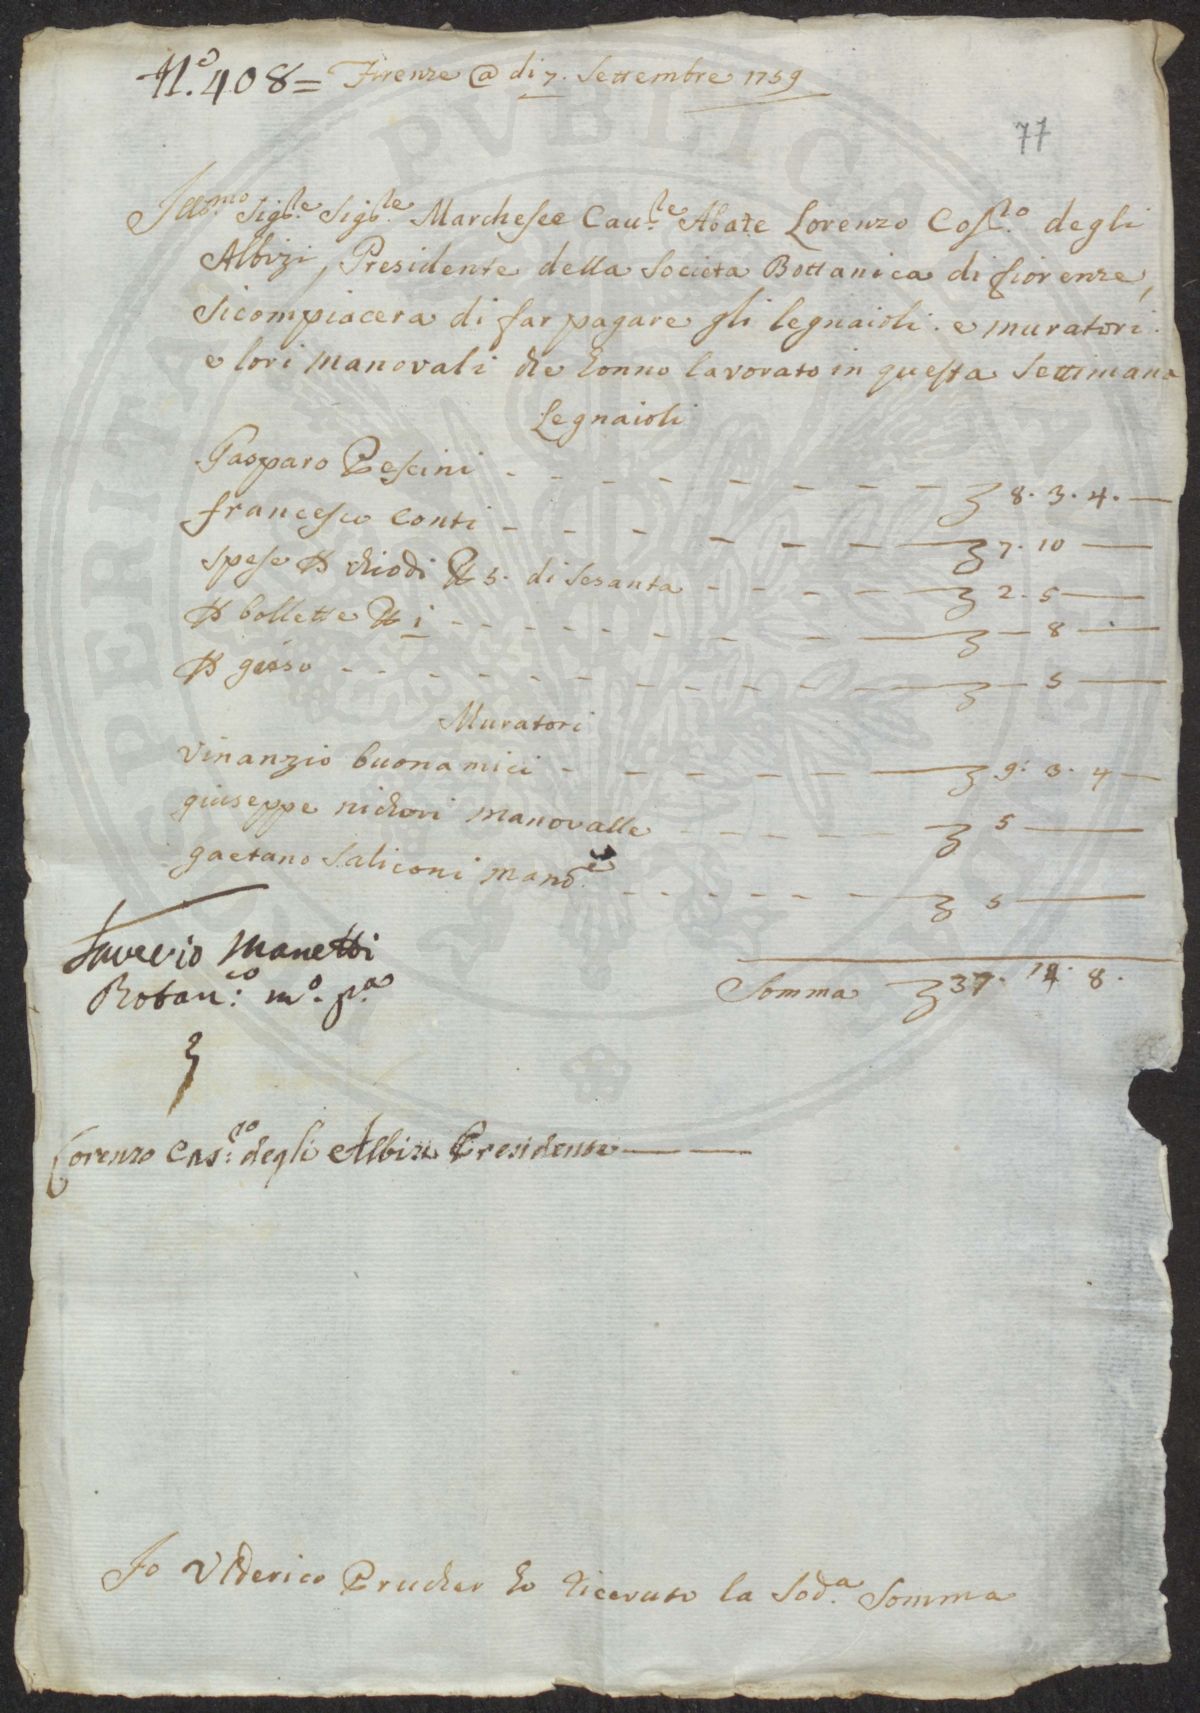 N.o 408= Firenze @ di 7. Settembre 1759
77
Illo.mo Sig.re Sig.re Marchese Cau.re Abate Lorenzo Cos.to degli
Albizi, Presidente della Societa Bottanica di fiorenze,
Sicompiacera di far pagare gli legnaioli. e muratori.
e lori manovali che honno lavorato in questa Settimana
Legnaioli
Gasparo Pescini - - - - - - - - 8. 3. 4. —
francesco Conti - - - - - - - 7. 10 —
spese chiodi 5. di Sesanta - - - - 2. 5 —
bollette i - - - - - - - - - — 8 —
gesso - - - - - - - - - - — 5 —
Muratori
Vinanzio buonamici - - - - - - 9: 3. 4 —
giuseppe nichori manovalle - - - - 5 —
gaetano Saliconi mano.e - - - - - 5 —
Saverio Manetti
Botan:co m.o p.a
Somma 37. 14. 8.
Lorenzo Cos:to degli Albizi Presidente — —
Io Vlderico Prucher ho riceuuto la Sod.a Somma